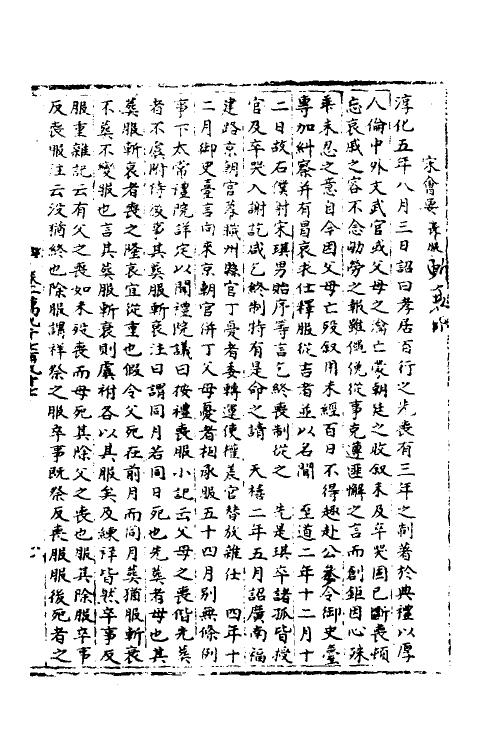 宋會要 喪服
淳化五年八月三日詔曰孝居百行之先喪有三年之制著於典禮以厚
人倫中外文武官或父母之淪亡蒙朝廷之收叙未及卒哭固已斷喪頓
忘哀戚之容不念劬勞之報雖僶俛從事克違匪懈之言而創鉅因心殊
乖未忍之意自今因父母亡殁叙用未經百日不得趨赴公參令御史臺
專加糾察并有冒哀求仕釋服從吉者並以名聞 至道二年十二月十
二日故右僕射宋琪男貽序等言乞終喪制從之 先是琪卒諸孤皆授
官及卒哭入謝訖咸乞終制特有是命之請 天禧二年五月詔廣南福
建路京朝官幕職州縣官丁憂者委轉運使權差官替放離任 四年十
二月御史臺言向來京朝官併丁父母憂者相承服五十四月別無條例
事下太常禮院詳定以聞禮院議曰按禮喪服小記云父母之喪偕先葬
者不虞附待後事其葬服斬衰注曰謂同月若同日死也先葬者母也其
葬服斬衰者喪之隆哀宜從重也假令父死在前月而同月葬猶服斬衰
不葬不變服也言其葬服斬衰則虞祔各以其服矣及練祥皆然卒事反
服重雜記云有父之喪如未殁喪而母死其除父之喪也服其除服卒事
反喪服注云沒猶終也除服謂祥祭之服卒事既祭反喪服服後死者之